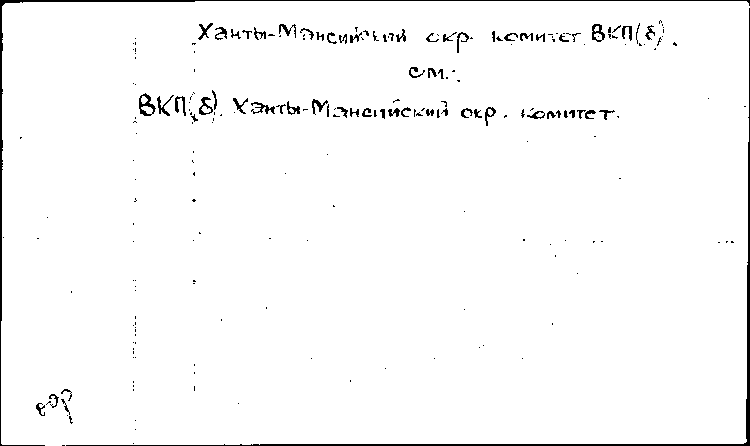 Ханты-Мансийский окр. комитет ВКП(б).
см.:
ВКП(б). Ханты-Мансийский окр. комитет.